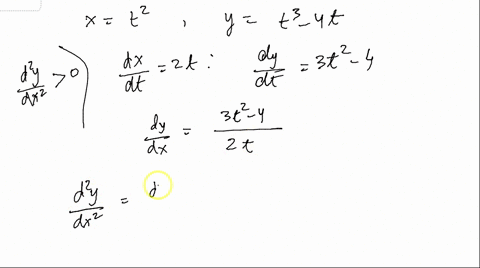 x = t² , y = t³-4t
d²y/dx² > 0 dx/dt = 2t : dy/dt = 3t²-4
dy/dx = 3t²-4/2t
d²y/dx² =